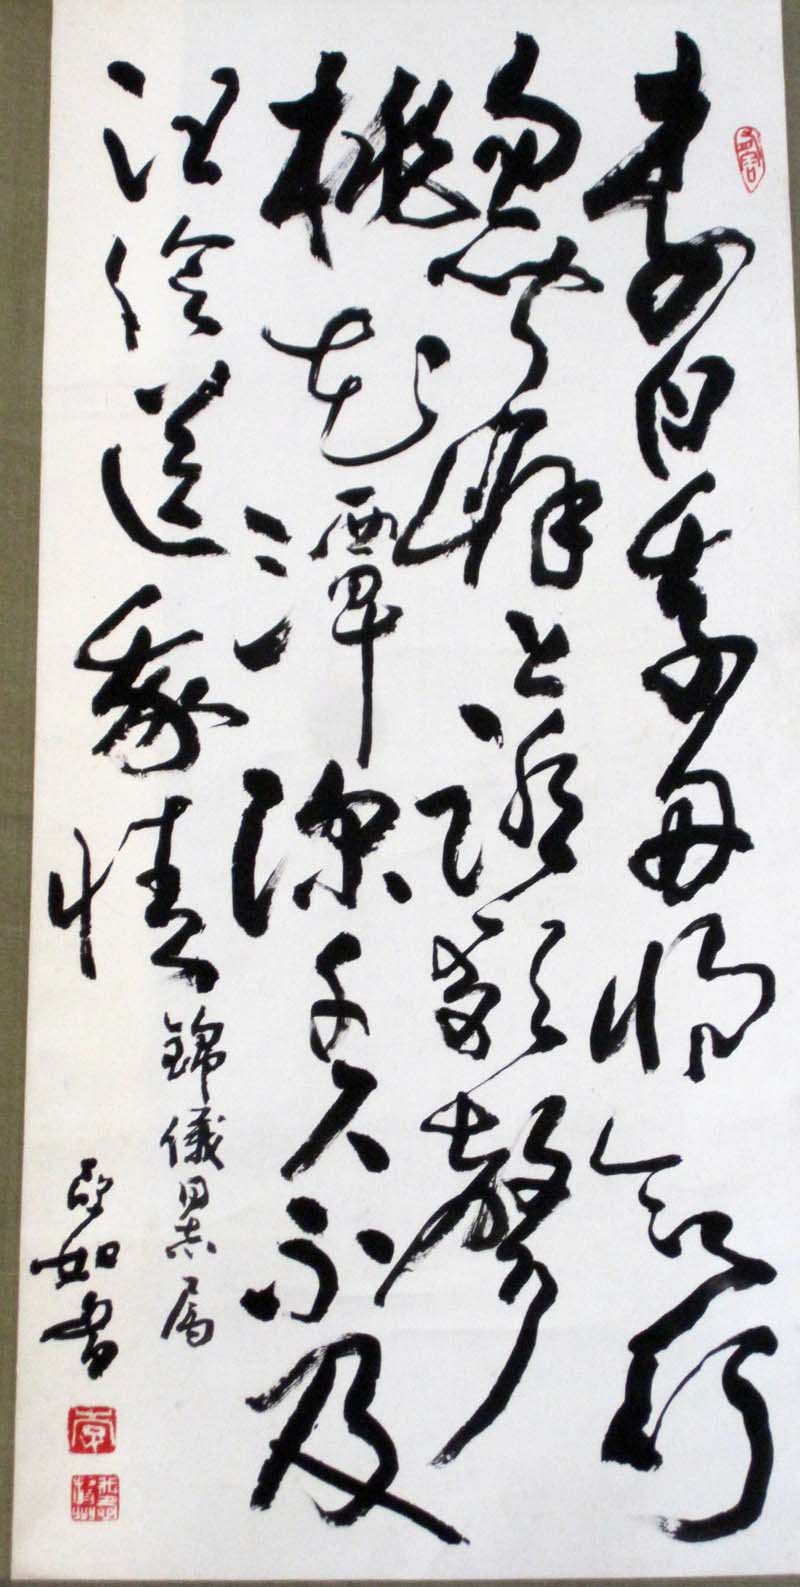 李白乘舟將欲行
忽聞岸上踏歌聲
桃花潭深千尺不及
汪倫送我情
錦儀同志屬
亞如書
李